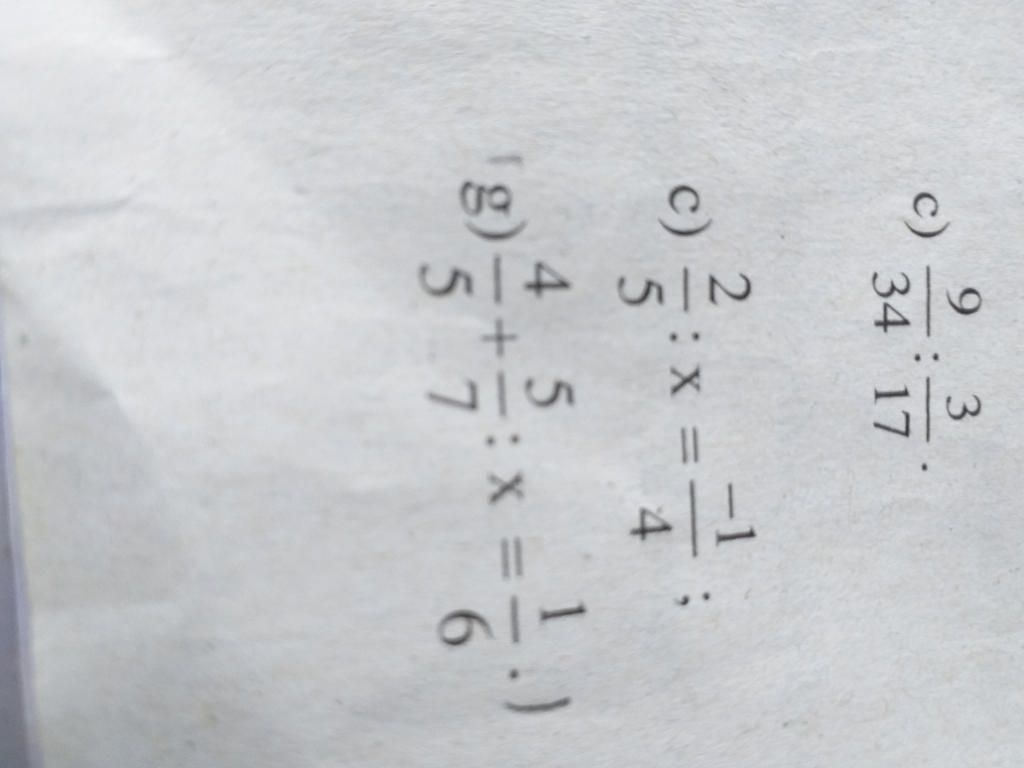 c) 9/34 : 3/17 .
c) 2/5 : x = -1/4 ;
g) 4/5 + 5/7 : x = 1/6 . )